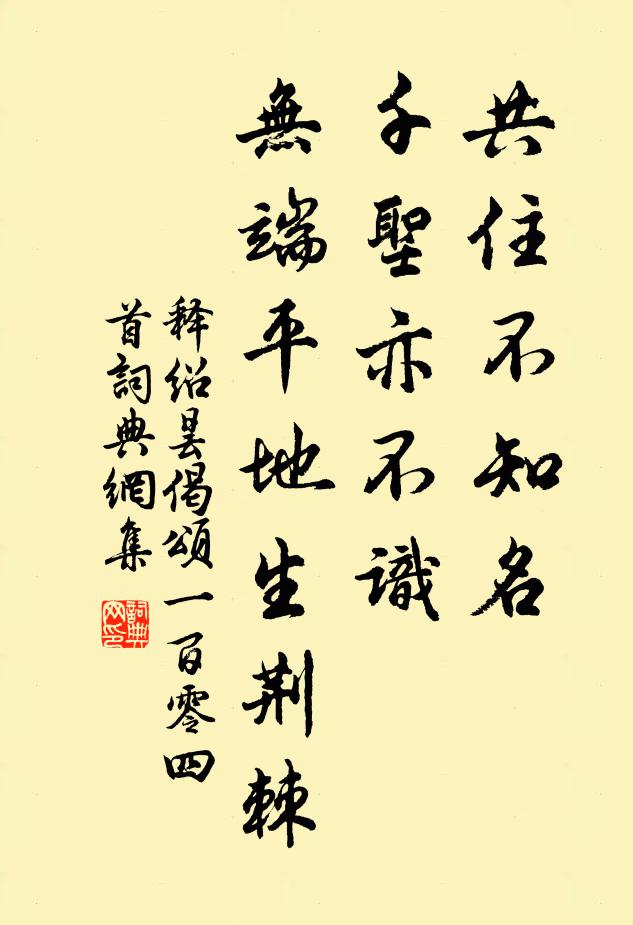 共住不知名
千聖亦不識
無端平地生荆棘
释紹曇偈頌一百零四
首詞典網集
詞典網印